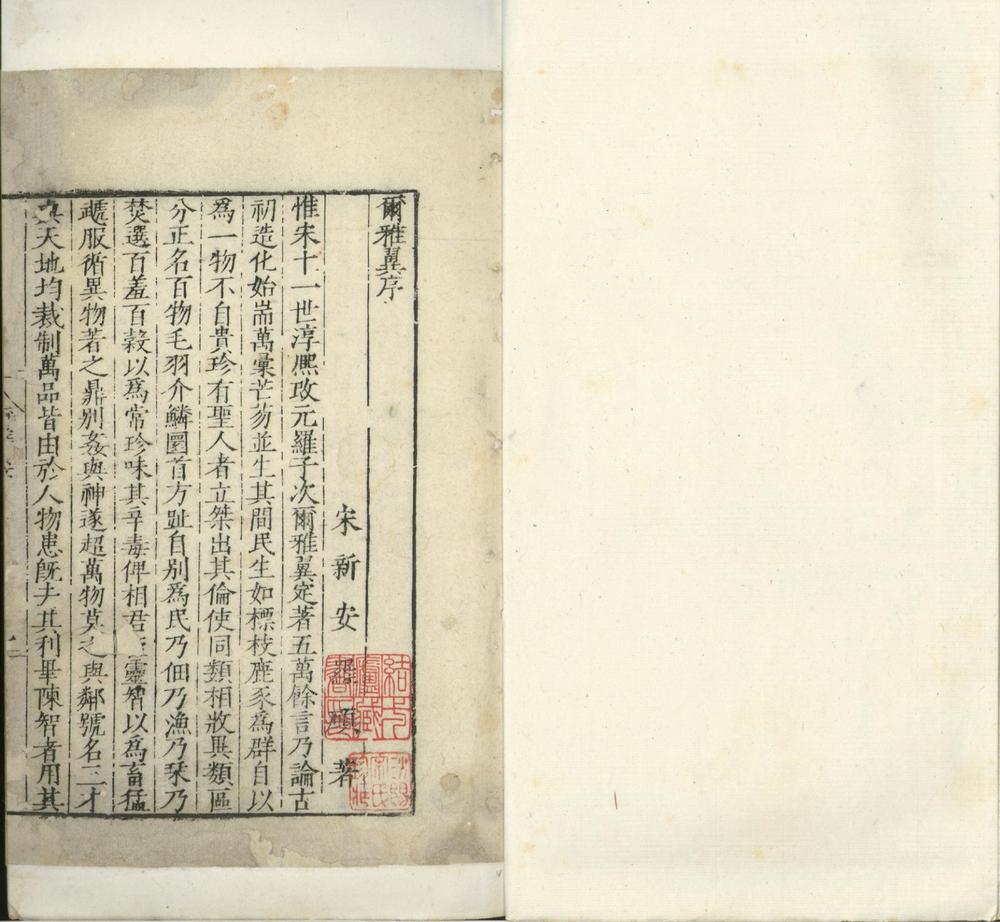 爾雅翼序
宋新安羅願著
惟宋十一世淳熈改元羅子次爾雅翼定著五萬餘言乃論古
初造化始耑萬彚芒芴並生其間民生如標枝鹿豕為群自以
為一物不自貴珍有聖人者立桀出其倫使同類相收異類區
分正名百物毛羽介鱗圎首方趾自别為民乃佃乃漁乃琹乃
焚選百羞百穀以為常珍味其辛毒俾相君臣靈智以為畜猛
虣服循異物著之鼎别姦與神遂超萬物莫之與鄰號名三才
與天地均裁制萬品皆由於人物患旣去其利畢陳智者用其
結一廬藏書印
氏